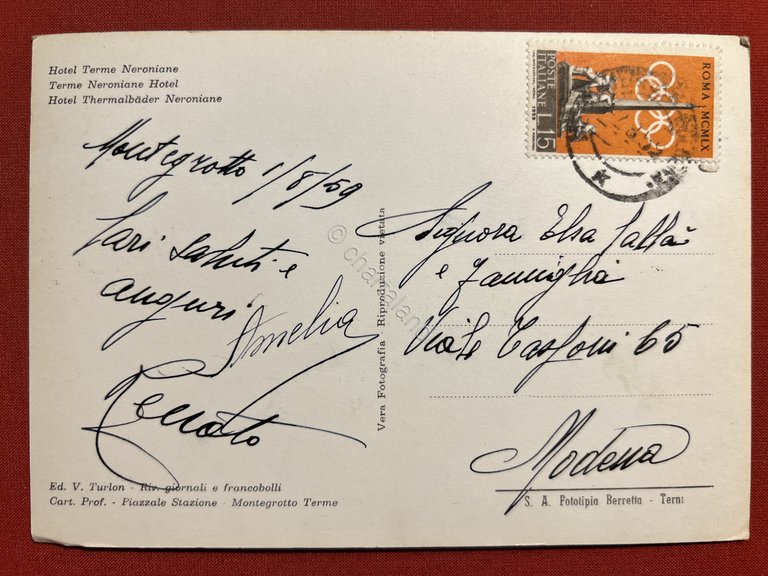 Hotel Terme Neroniane
Terme Neroniane Hotel
Hotel Thermalbäder Neroniane
POSTE ITALIANE L.15
ROMA MCMLX
1959
Montegrotto 1/8/59
Cari saluti e
auguri
Amelia
Renato
Vera Fotografia - Riproduzione vietata
Signora Elsa
e famiglia
Viale Tassoni 65
Modena
Ed. V. Turlon - Riv. giornali e francobolli
Cart. Prof. - Piazzale Stazione - Montegrotto Terme
S. A. Fototipia Berretta - Terni